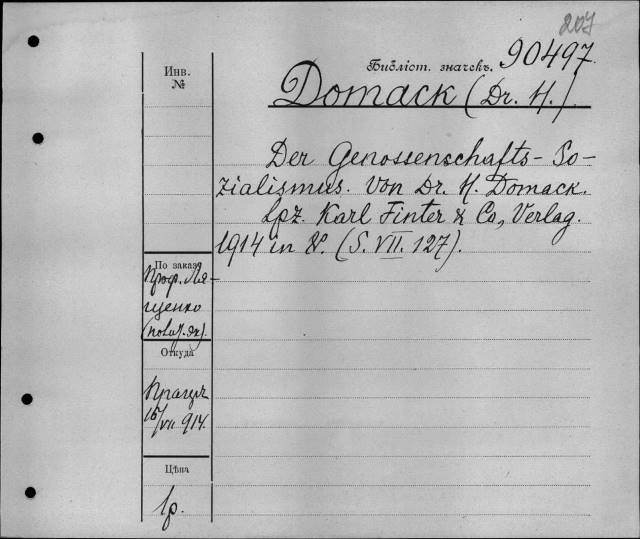 207
Инв.
№
Библіот. значекъ. 90497.
Domack (Dr. H.).
Der Genossenschafts-So-
zialismus. Von Dr. H. Domack.
Lpz. Karl Finter & Co, Verlag.
1914 in 8º. (S. VII. 127).
По заказу
Проф. Ля-
щенко
Откуда
16/VII 914.
Цѣна
1 р.